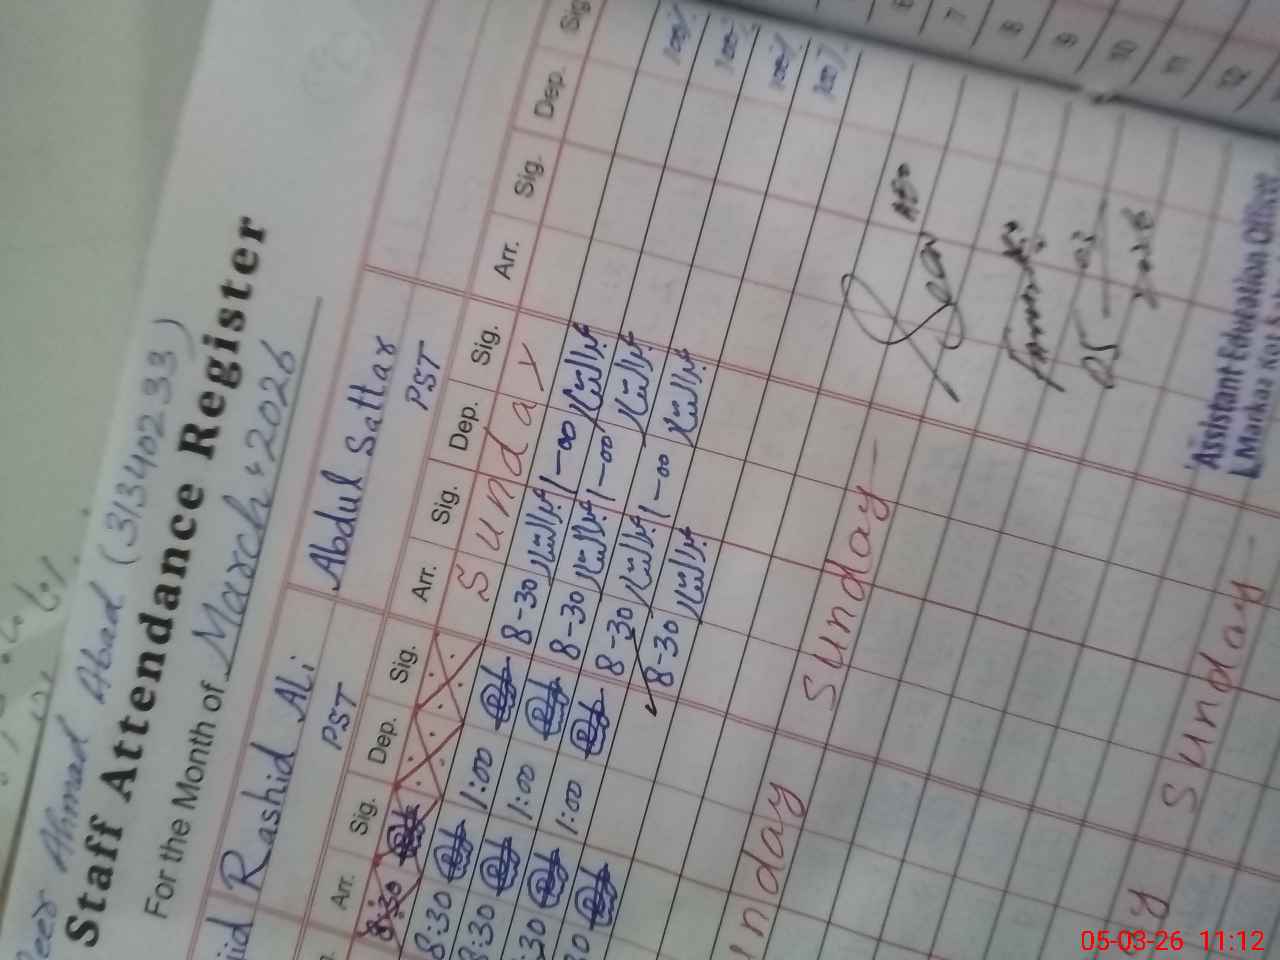 Peer Ahmad Abad (31340233)
Staff Attendance Register
For the Month of March, 2026
Rashid Ali
Abdul Sattar
PST
PST
Arr. Sig. Dep. Sig. Arr. Sig. Dep. Sig. Arr. Sig. Dep. Sig.
8:30 Sunday
8:30 1:00 8-30 عبدالستار 1-00 عبدالستار
8:30 1:00 8-30 عبدالستار 1-00 عبدالستار 100%
:30 1:00 8-30 عبدالستار 1-00 عبدالستار 100%
30 8-30 عبدالستار 100%
100%
Sunday
Sunday
AEO
05-03-2026
Assistant Education Officer
Markaz Kot
6
7
8
9
10
11
12
05-03-26 11:12